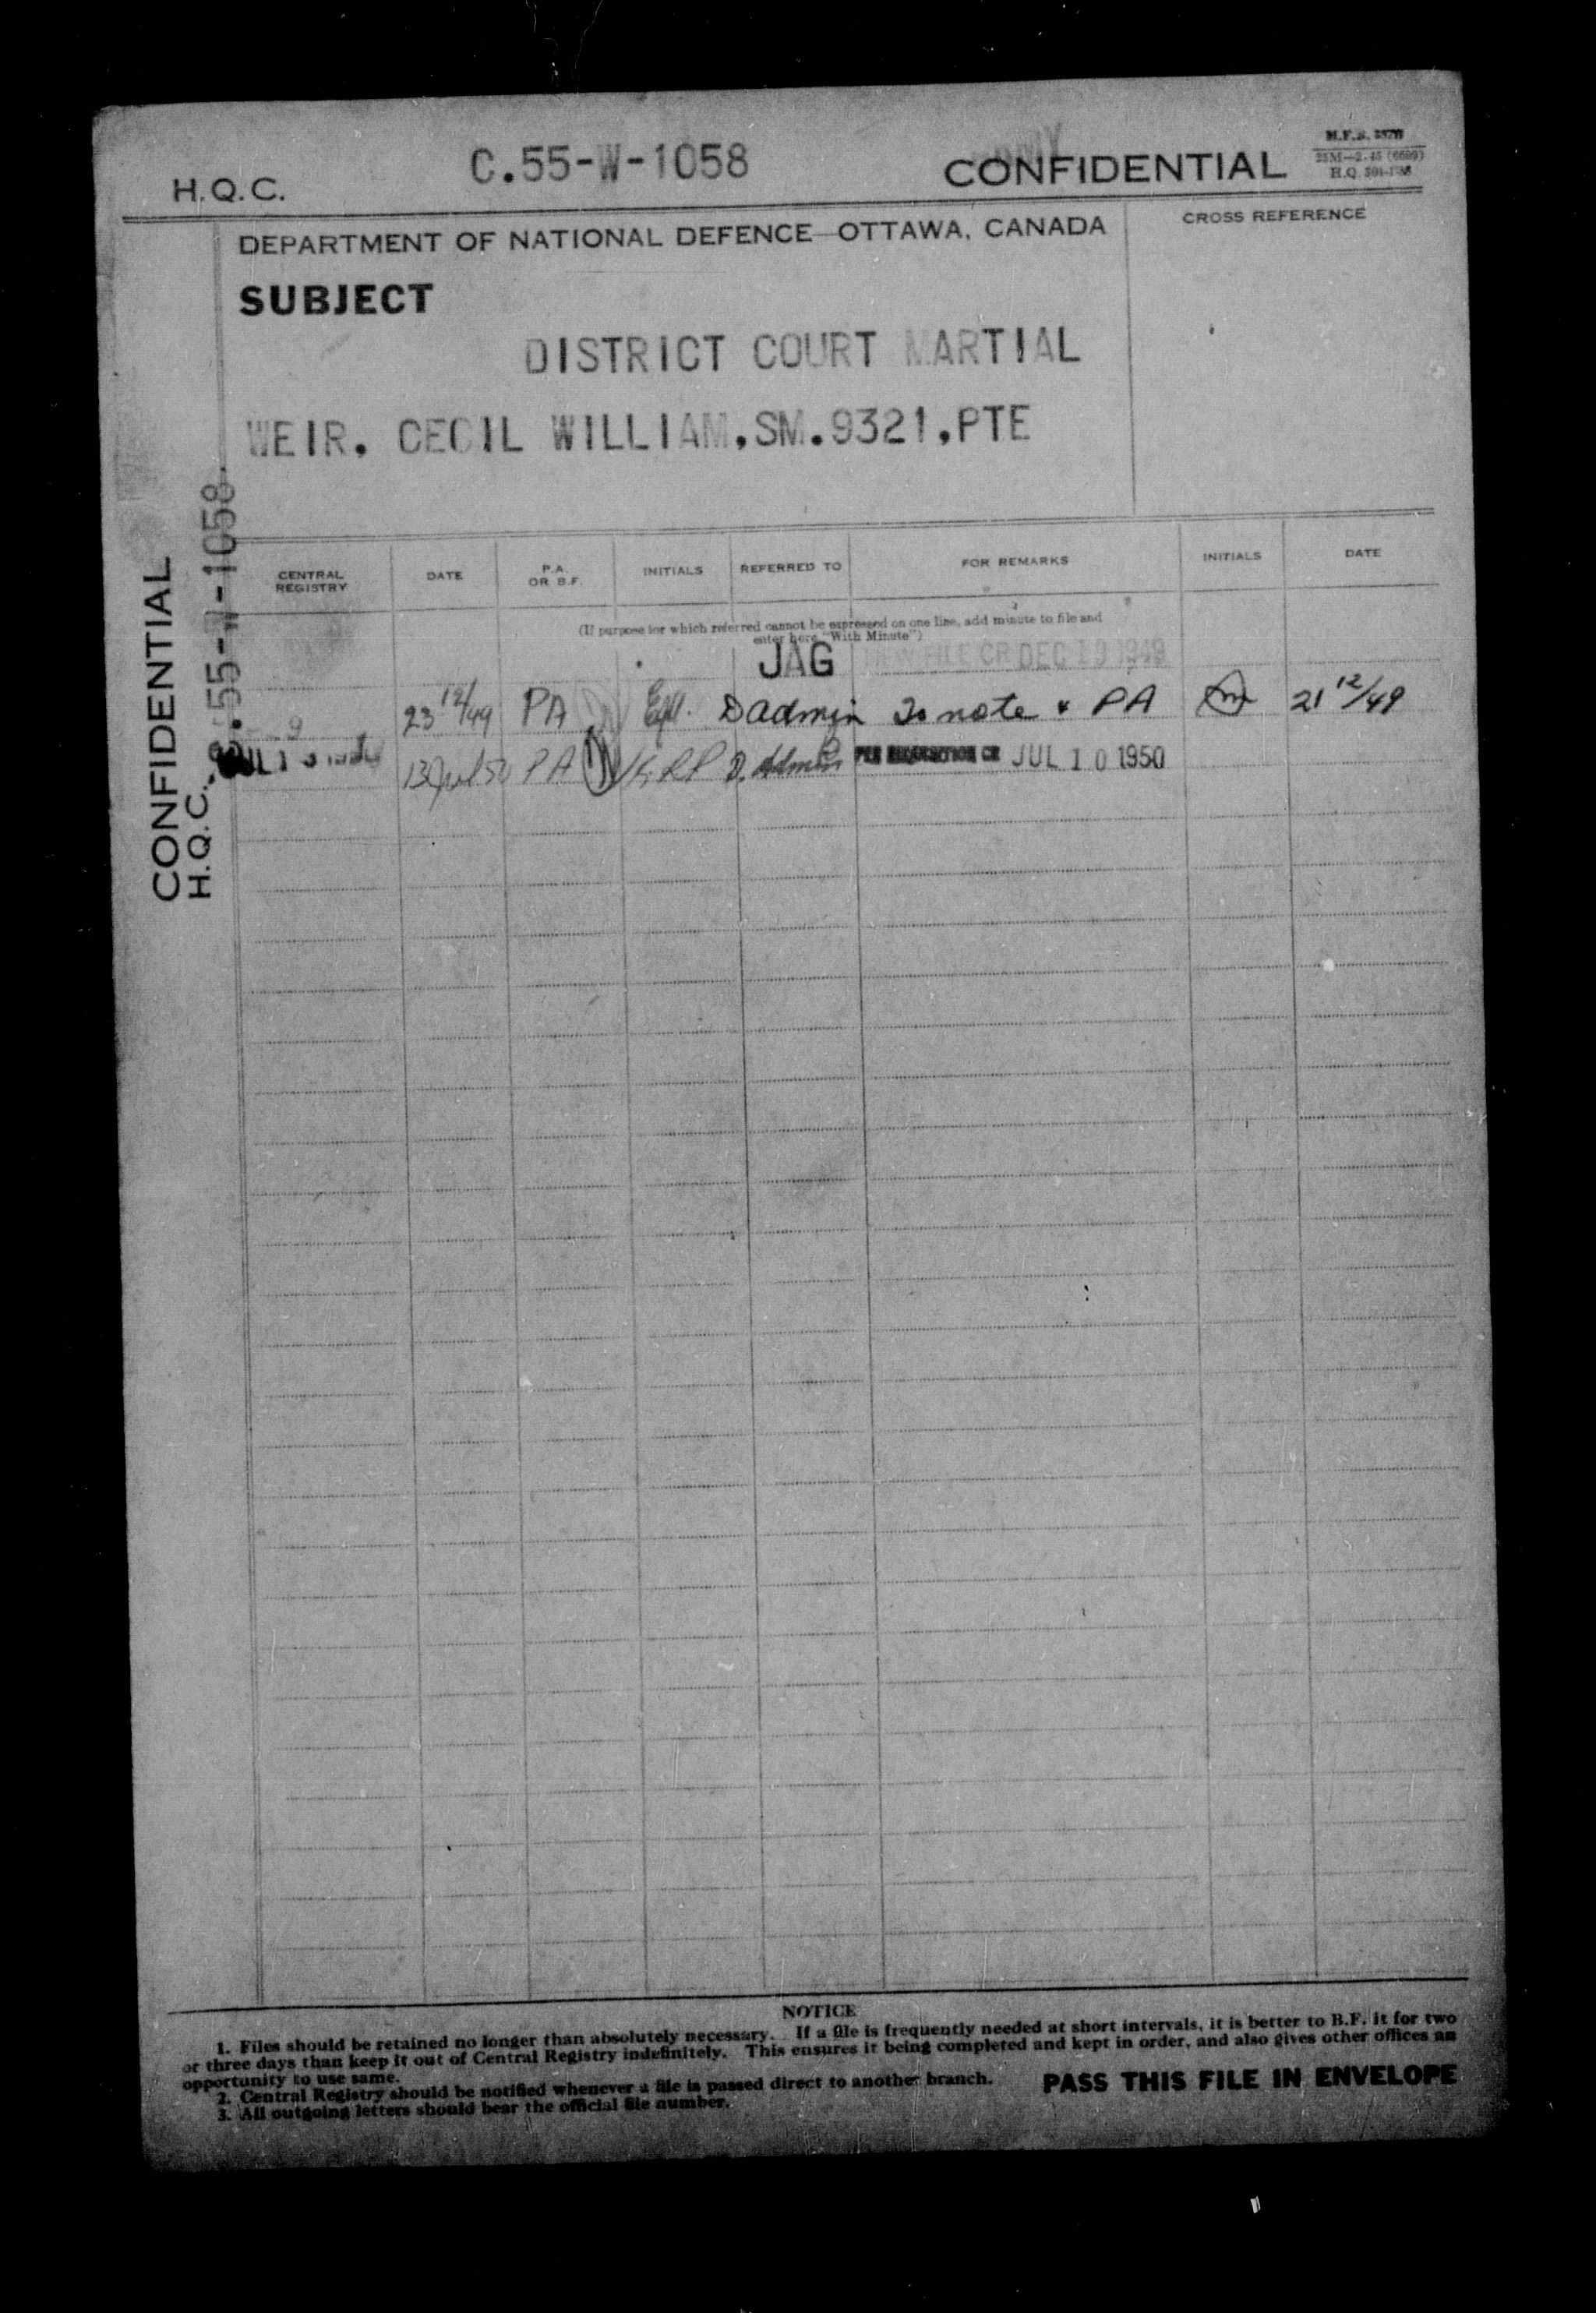 C.55-W-1058
CONFIDENTIAL
H.Q.C.
DEPARTMENT OF NATIONAL DEFENCE—OTTAWA, CANADA
CROSS REFERENCE
SUBJECT
DISTRICT COURT MARTIAL
WEIR, CECIL WILLIAM,SM.9321,PTE
CONFIDENTIAL
H.Q.C. C.55-W-1058
CENTRAL REGISTRY DATE P.A. OR B.F. INITIALS REFERRED TO FOR REMARKS INITIALS DATE
(If purpose for which referred cannot be expressed on one line, add minute to file and
enter here "With Minute")
JAG NEW FILE CR DEC 19 1949
23 12/49 PA D admin To note & PA 21 12/49
13 Jul 50 PA D. Admin JUL 10 1950
NOTICE
1. Files should be retained no longer than absolutely necessary. If a file is frequently needed at short intervals, it is better to B.F. it for two
or three days than keep it out of Central Registry indefinitely. This ensures it being completed and kept in order, and also gives other offices an
opportunity to use same.
2. Central Registry should be notified whenever a file is passed direct to another branch.
3. All outgoing letters should bear the official file number.
PASS THIS FILE IN ENVELOPE